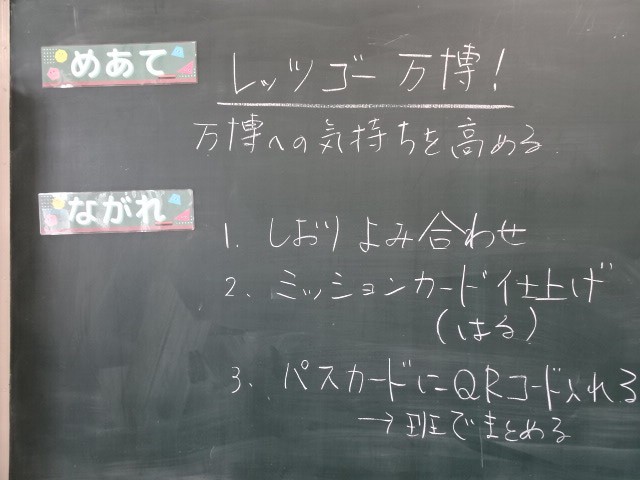 めあて
レッツゴー万博!
万博への気持ちを高める
ながれ
1. しおりよみ合わせ
2. ミッションカード仕上げ
(はる)
3. パスカードにQRコード入れる
→班でまとめる